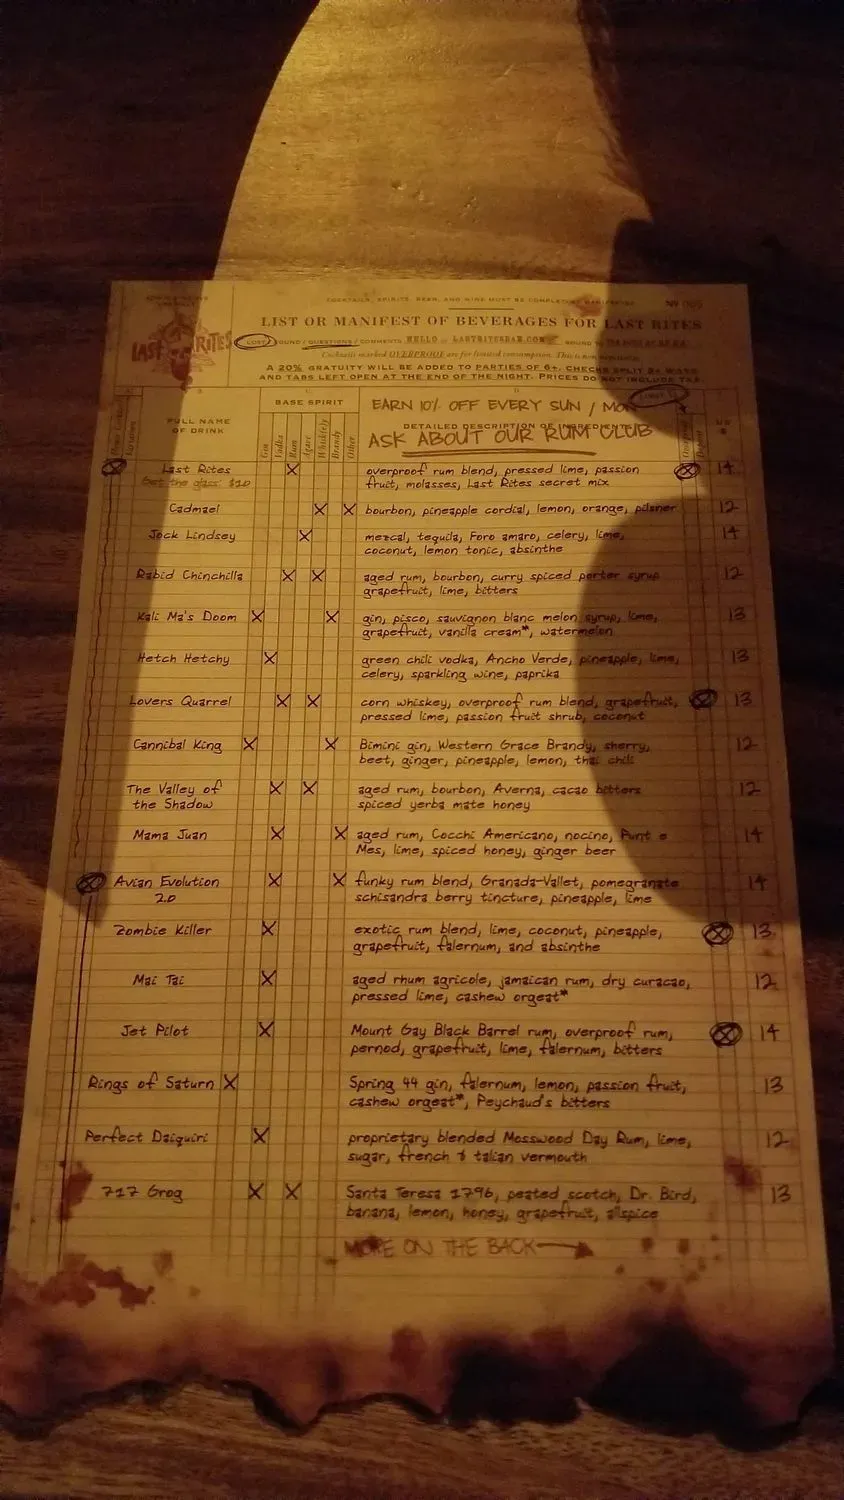 COCKTAILS, SPIRITS, BEER, AND WINE MUST BE COMPLETELY MANIFESTED
Nº 005
LIST OR MANIFEST OF BEVERAGES FOR LAST RITES
LAST RITES
LOST / FOUND / QUESTIONS / COMMENTS HELLO @ LASTRITESBAR.COM BOUND TO
Cocktails marked OVERPROOF are for limited consumption. This is non negotiable.
A 20% GRATUITY WILL BE ADDED TO PARTIES OF 6+. CHECKS SPLIT 3+ WAYS
AND TABS LEFT OPEN AT THE END OF THE NIGHT. PRICES DO NOT INCLUDE TAX.
BASE SPIRIT
EARN 10% OFF EVERY SUN / MON
FULL NAME
OF DRINK
DETAILED DESCRIPTION OF INGREDIENTS
ASK ABOUT OUR RUM CLUB
Gin Vodka Rum Agave Whisk(e)y Brandy Other
Last Rites X overproof rum blend, pressed lime, passion X 14
Get the glass: $20 fruit, molasses, Last Rites secret mix
Cadmael X X bourbon, pineapple cordial, lemon, orange, pilsner 12
Jock Lindsey X mezcal, tequila, Foro amaro, celery, lime, 14
coconut, lemon tonic, absinthe
Rabid Chinchilla X X aged rum, bourbon, curry spiced porter syrup 12
grapefruit, lime, bitters
Kali Ma's Doom X X gin, pisco, sauvignon blanc melon syrup, lime, 13
grapefruit, vanilla cream*, watermelon
Hetch Hetchy X green chili vodka, Ancho Verde, pineapple, lime, 13
celery, sparkling wine, paprika
Lovers Quarrel X X corn whiskey, overproof rum blend, grapefruit, X 13
pressed lime, passion fruit shrub, coconut
Cannibal King X X Bimini gin, Western Grace Brandy, sherry, 12
beet, ginger, pineapple, lemon, thai chili
The Valley of X X aged rum, bourbon, Averna, cacao bitters 12
the Shadow spiced yerba mate honey
Mama Juan X X aged rum, Cocchi Americano, nocino, Punt e 14
Mes, lime, spiced honey, ginger beer
Avian Evolution X X funky rum blend, Granada-Vallet, pomegranate 14
2.0 schisandra berry tincture, pineapple, lime
Zombie Killer X exotic rum blend, lime, coconut, pineapple, X 13
grapefruit, falernum, and absinthe
Mai Tai X aged rhum agricole, jamaican rum, dry curacao, 12
pressed lime, cashew orgeat*
Jet Pilot X Mount Gay Black Barrel rum, overproof rum, X 14
pernod, grapefruit, lime, falernum, bitters
Rings of Saturn X Spring 44 gin, falernum, lemon, passion fruit, 13
cashew orgeat*, Peychaud's bitters
Perfect Daiquiri X proprietary blended Mosswood Day Rum, lime, 12
sugar, french & talian vermouth
717 Grog X X Santa Teresa 1796, peated scotch, Dr. Bird, 13
banana, lemon, honey, grapefruit, allspice
MORE ON THE BACK